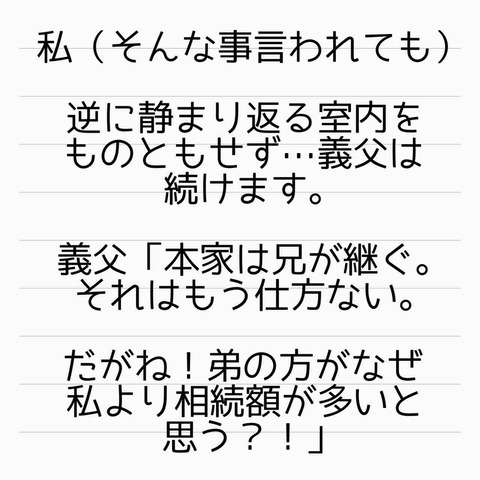 私（そんな事言われても）
逆に静まり返る室内を
ものともせず…義父は
続けます。
義父「本家は兄が継ぐ。
それはもう仕方ない。
だがね！弟の方がなぜ
私より相続額が多いと
思う？！」